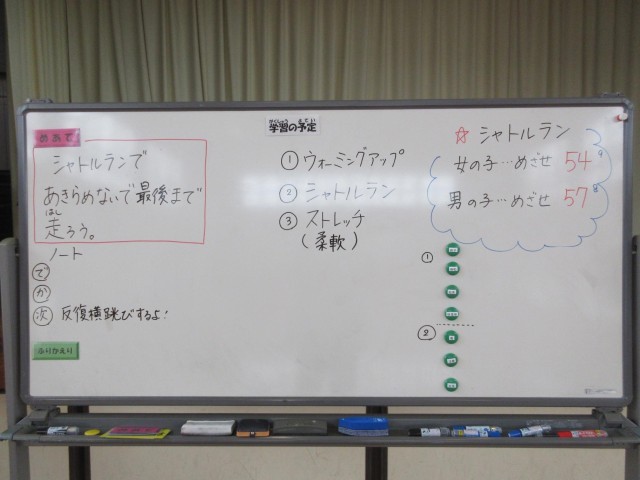 めあて
シャトルランで
あきらめないで最後まで
はし
走ろう。
ノート
で
か
次 反復横跳びするよ!
ふりかえり
がくしゅう よてい
学習の予定
① ウォーミングアップ
② シャトルラン
③ ストレッチ
(柔軟)
☆ シャトルラン
女の子…めざせ 54
男の子…めざせ 57
①
②